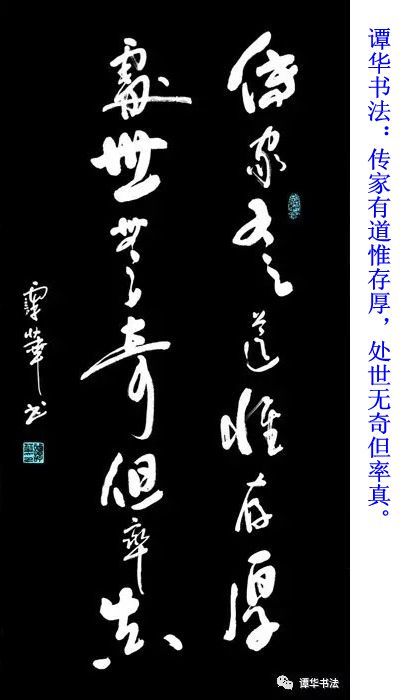 谭华书法：传家有道惟存厚，处世无奇但率真。
傳家有道惟存厚
處世無奇但率真
譚華书
谭华书法